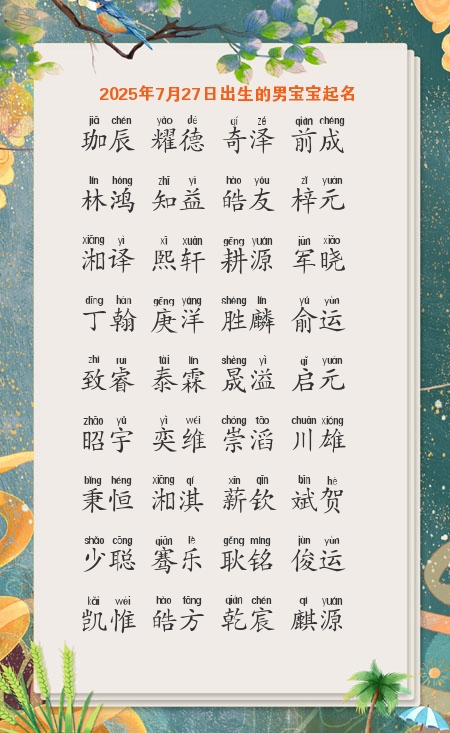 2025年7月27日出生的男宝宝起名
jiā chén yào dé qí zé qián chéng
珈辰 耀德 奇泽 前成
lín hóng zhī yì hào yǒu zǐ yuán
林鸿 知益 皓友 梓元
xiāng yì xī xuān gēng yuán jūn xiǎo
湘译 熙轩 耕源 军晓
dīng hàn gēng yáng shèng lín yú yùn
丁翰 庚洋 胜麟 俞运
zhì ruì tài lín shèng yì qǐ yuán
致睿 泰霖 晟溢 启元
zhāo yǔ yì wéi chóng tāo chuān xióng
昭宇 奕维 崇滔 川雄
bǐng héng xiāng qí xīn qīn bīn hè
秉恒 湘淇 薪钦 斌贺
shào cōng qiān lè gěng míng jùn yùn
少聪 骞乐 耿铭 俊运
kǎi wéi hào fāng qián chén qí yuán
凯惟 皓方 乾宸 麒源